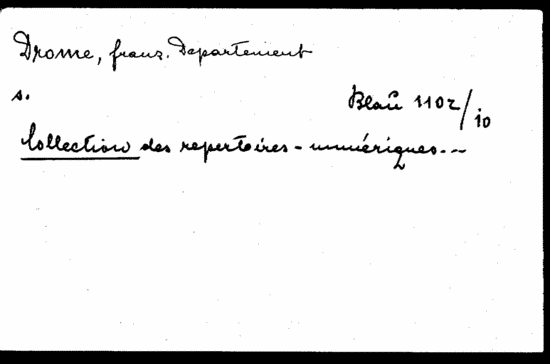 Drome, franz. Departement
s.
Blau 1102/10
Collection des repertoires - numériques...